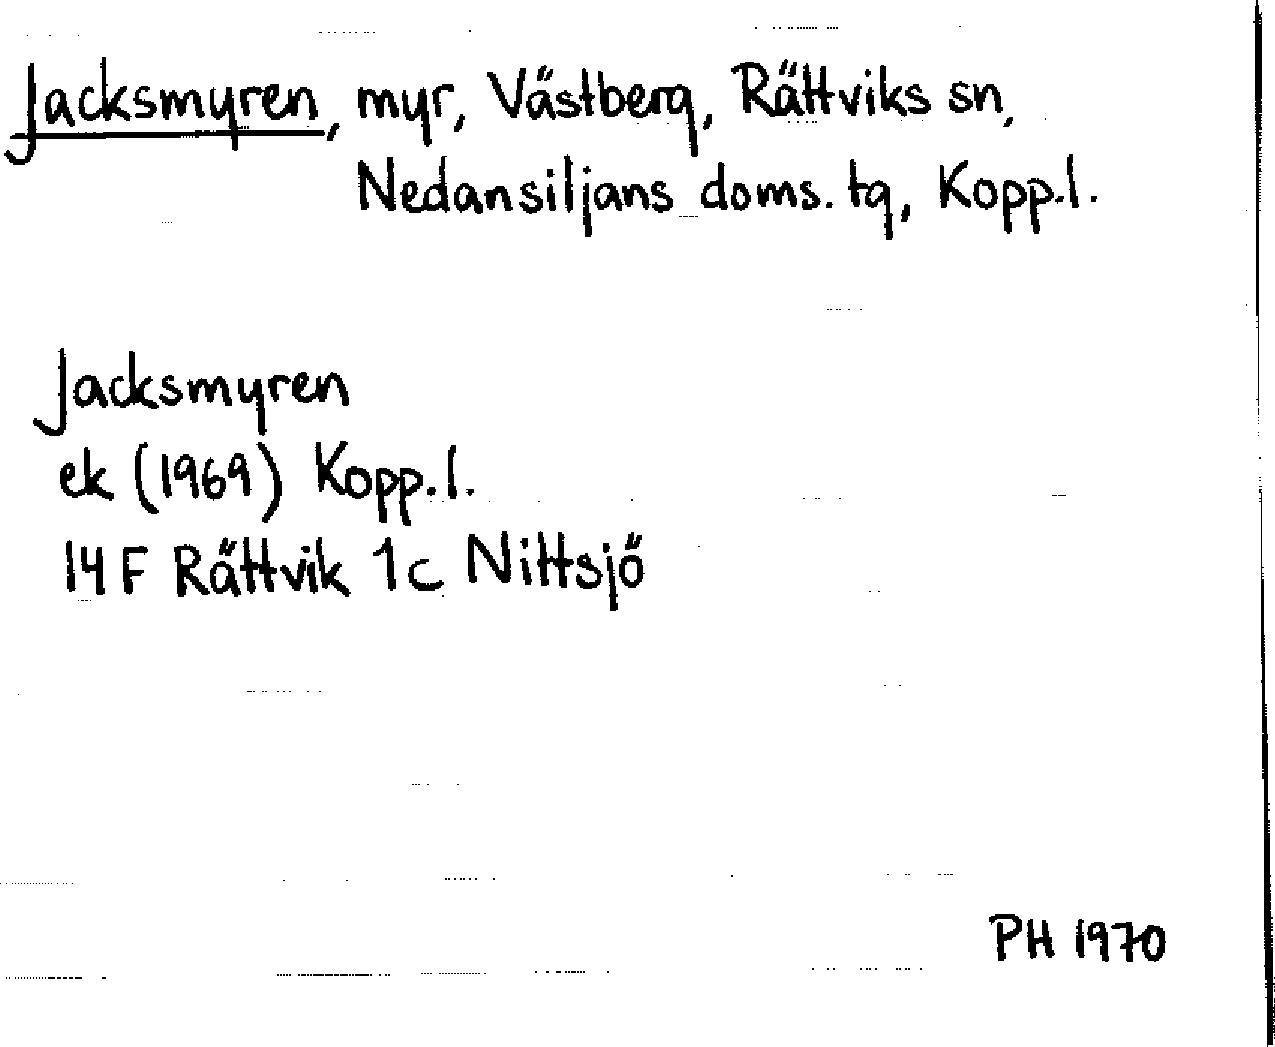 Jacksmyren, myr, Västberg, Rättviks sn,
Nedansiljans doms. tg, Kopp.l.
Jacksmyren
ek (1969) Kopp.l.
14 F Rättvik 1c Nittsjö
PH 1970